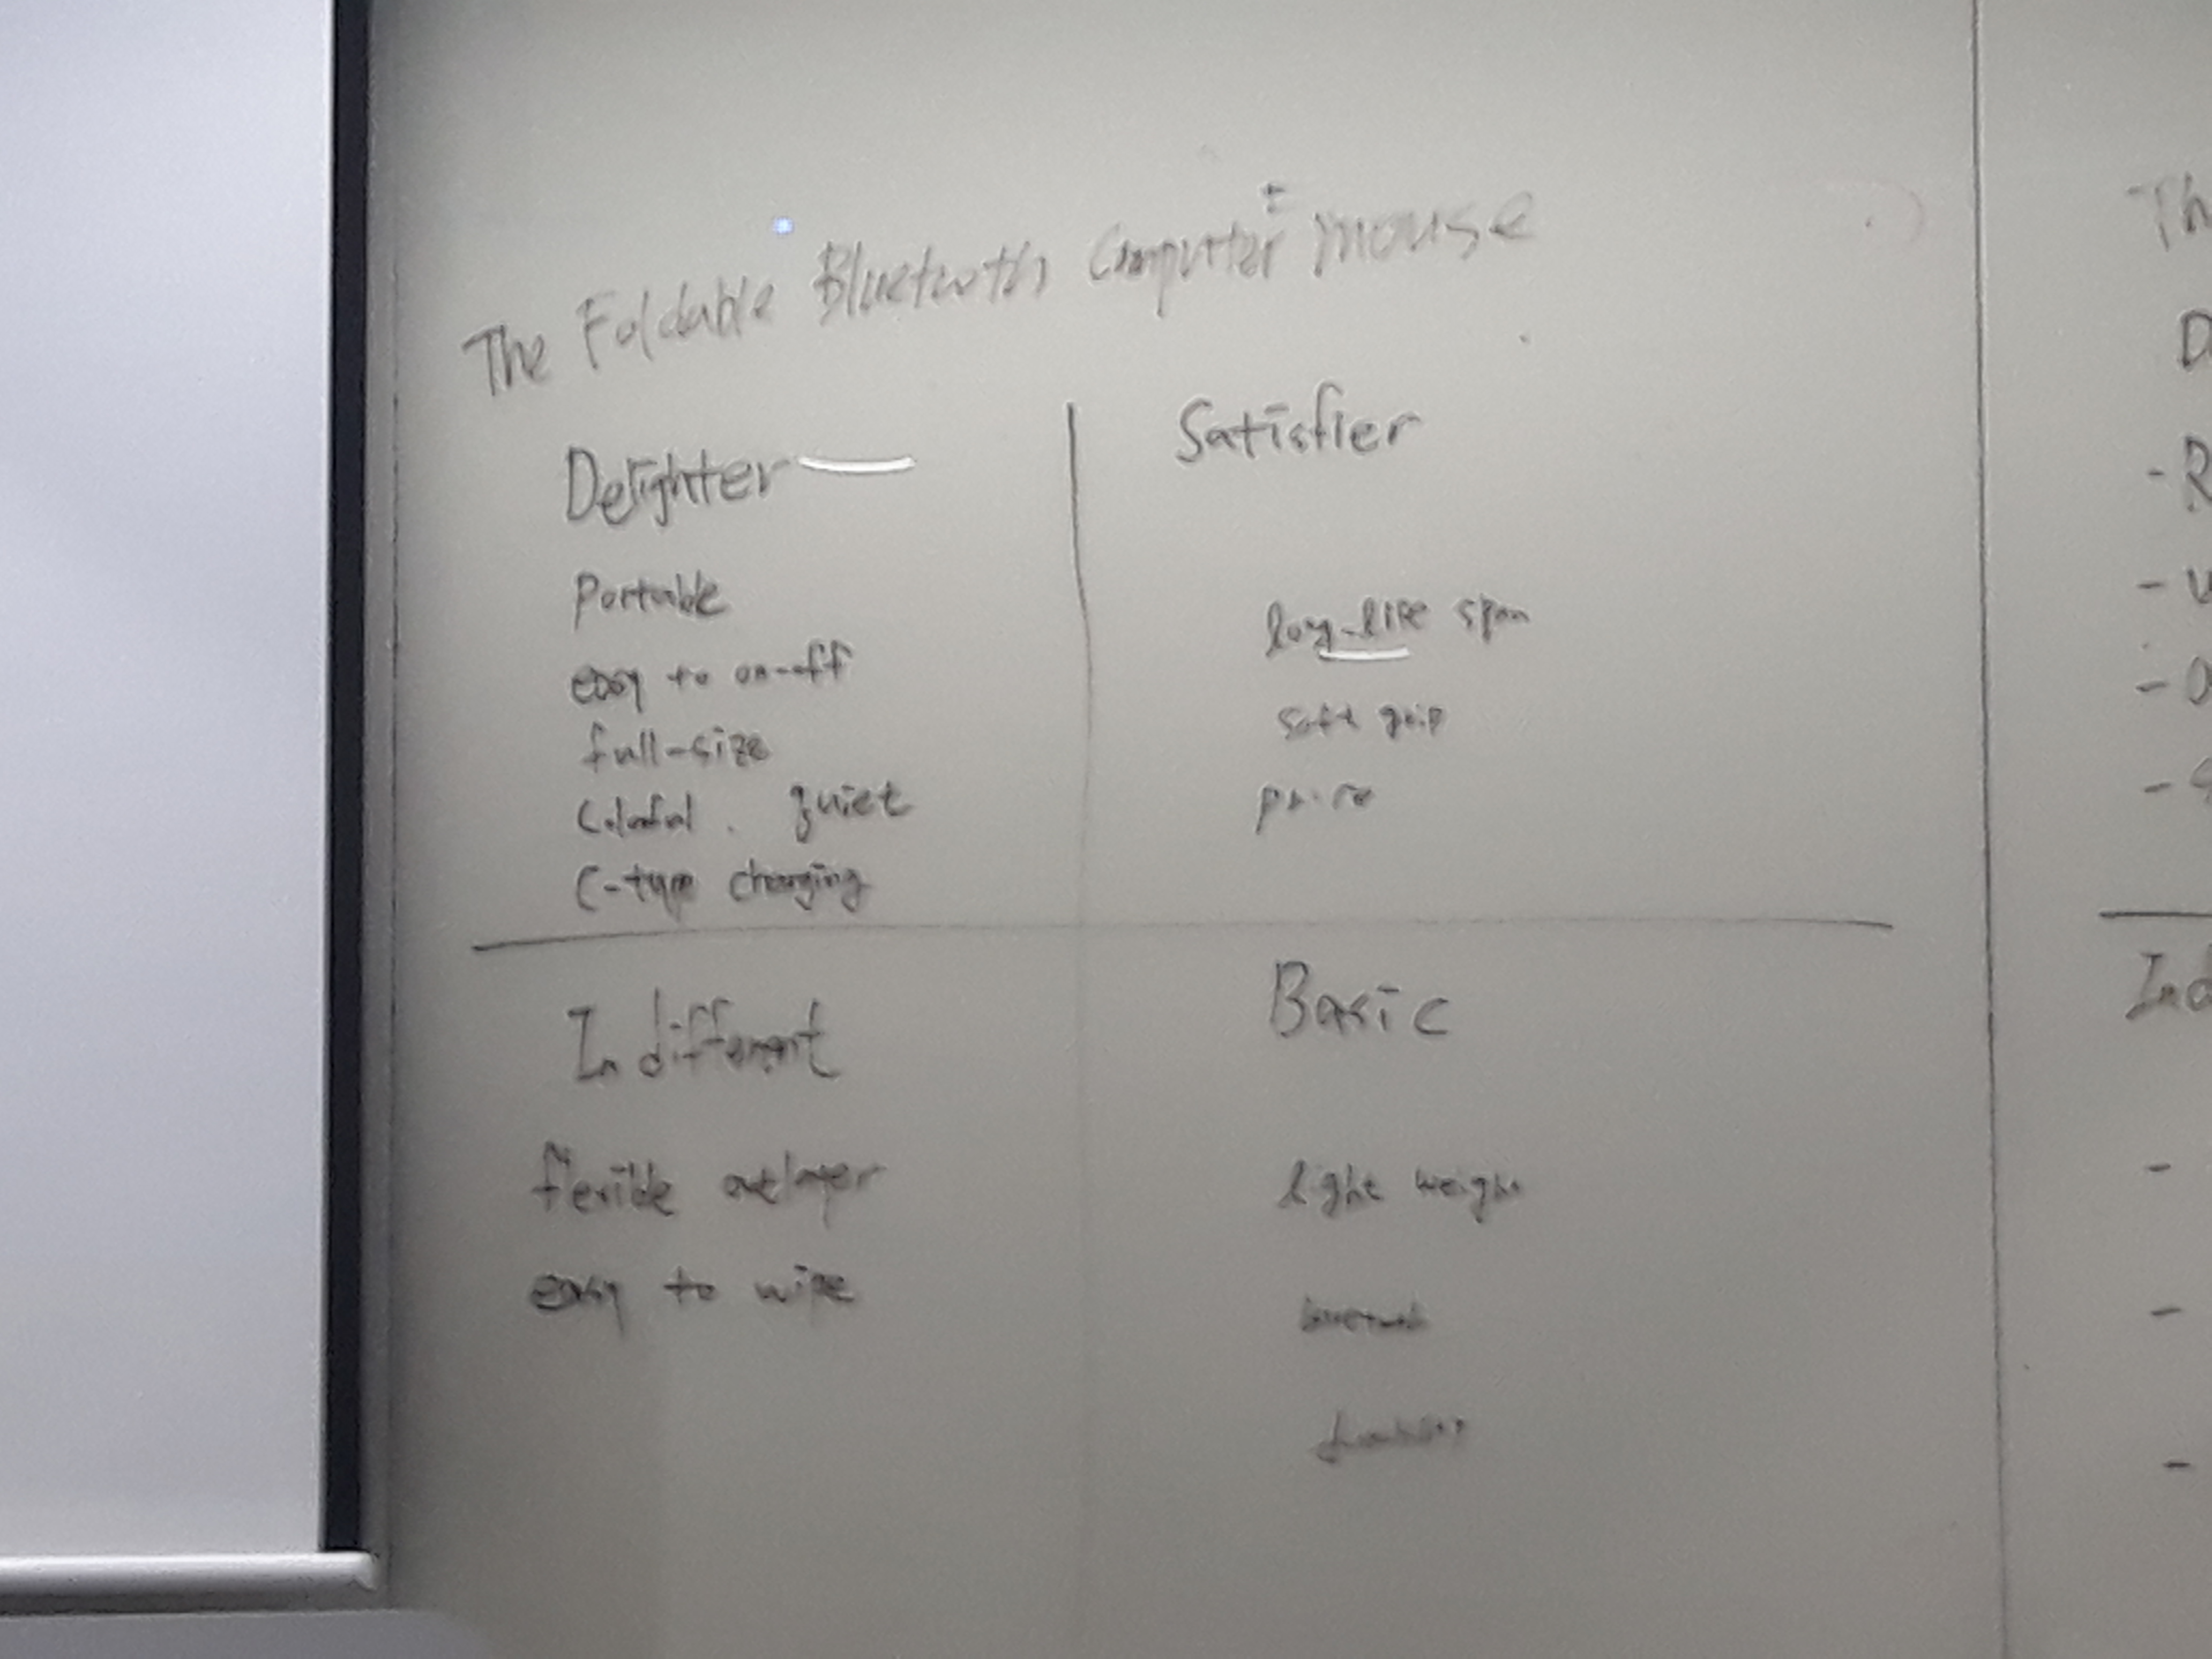 The Foldable Bluetooth Computer mouse
Delighter
Portable
easy to on-off
full-size
Colorful . quiet
C-type charging
Satisfier
long-life span
soft grip
price
Indifferent
flexible outlayer
easy to wipe
Basic
light weight
Th
D
- R
-
-
-
Ind
-
-
-